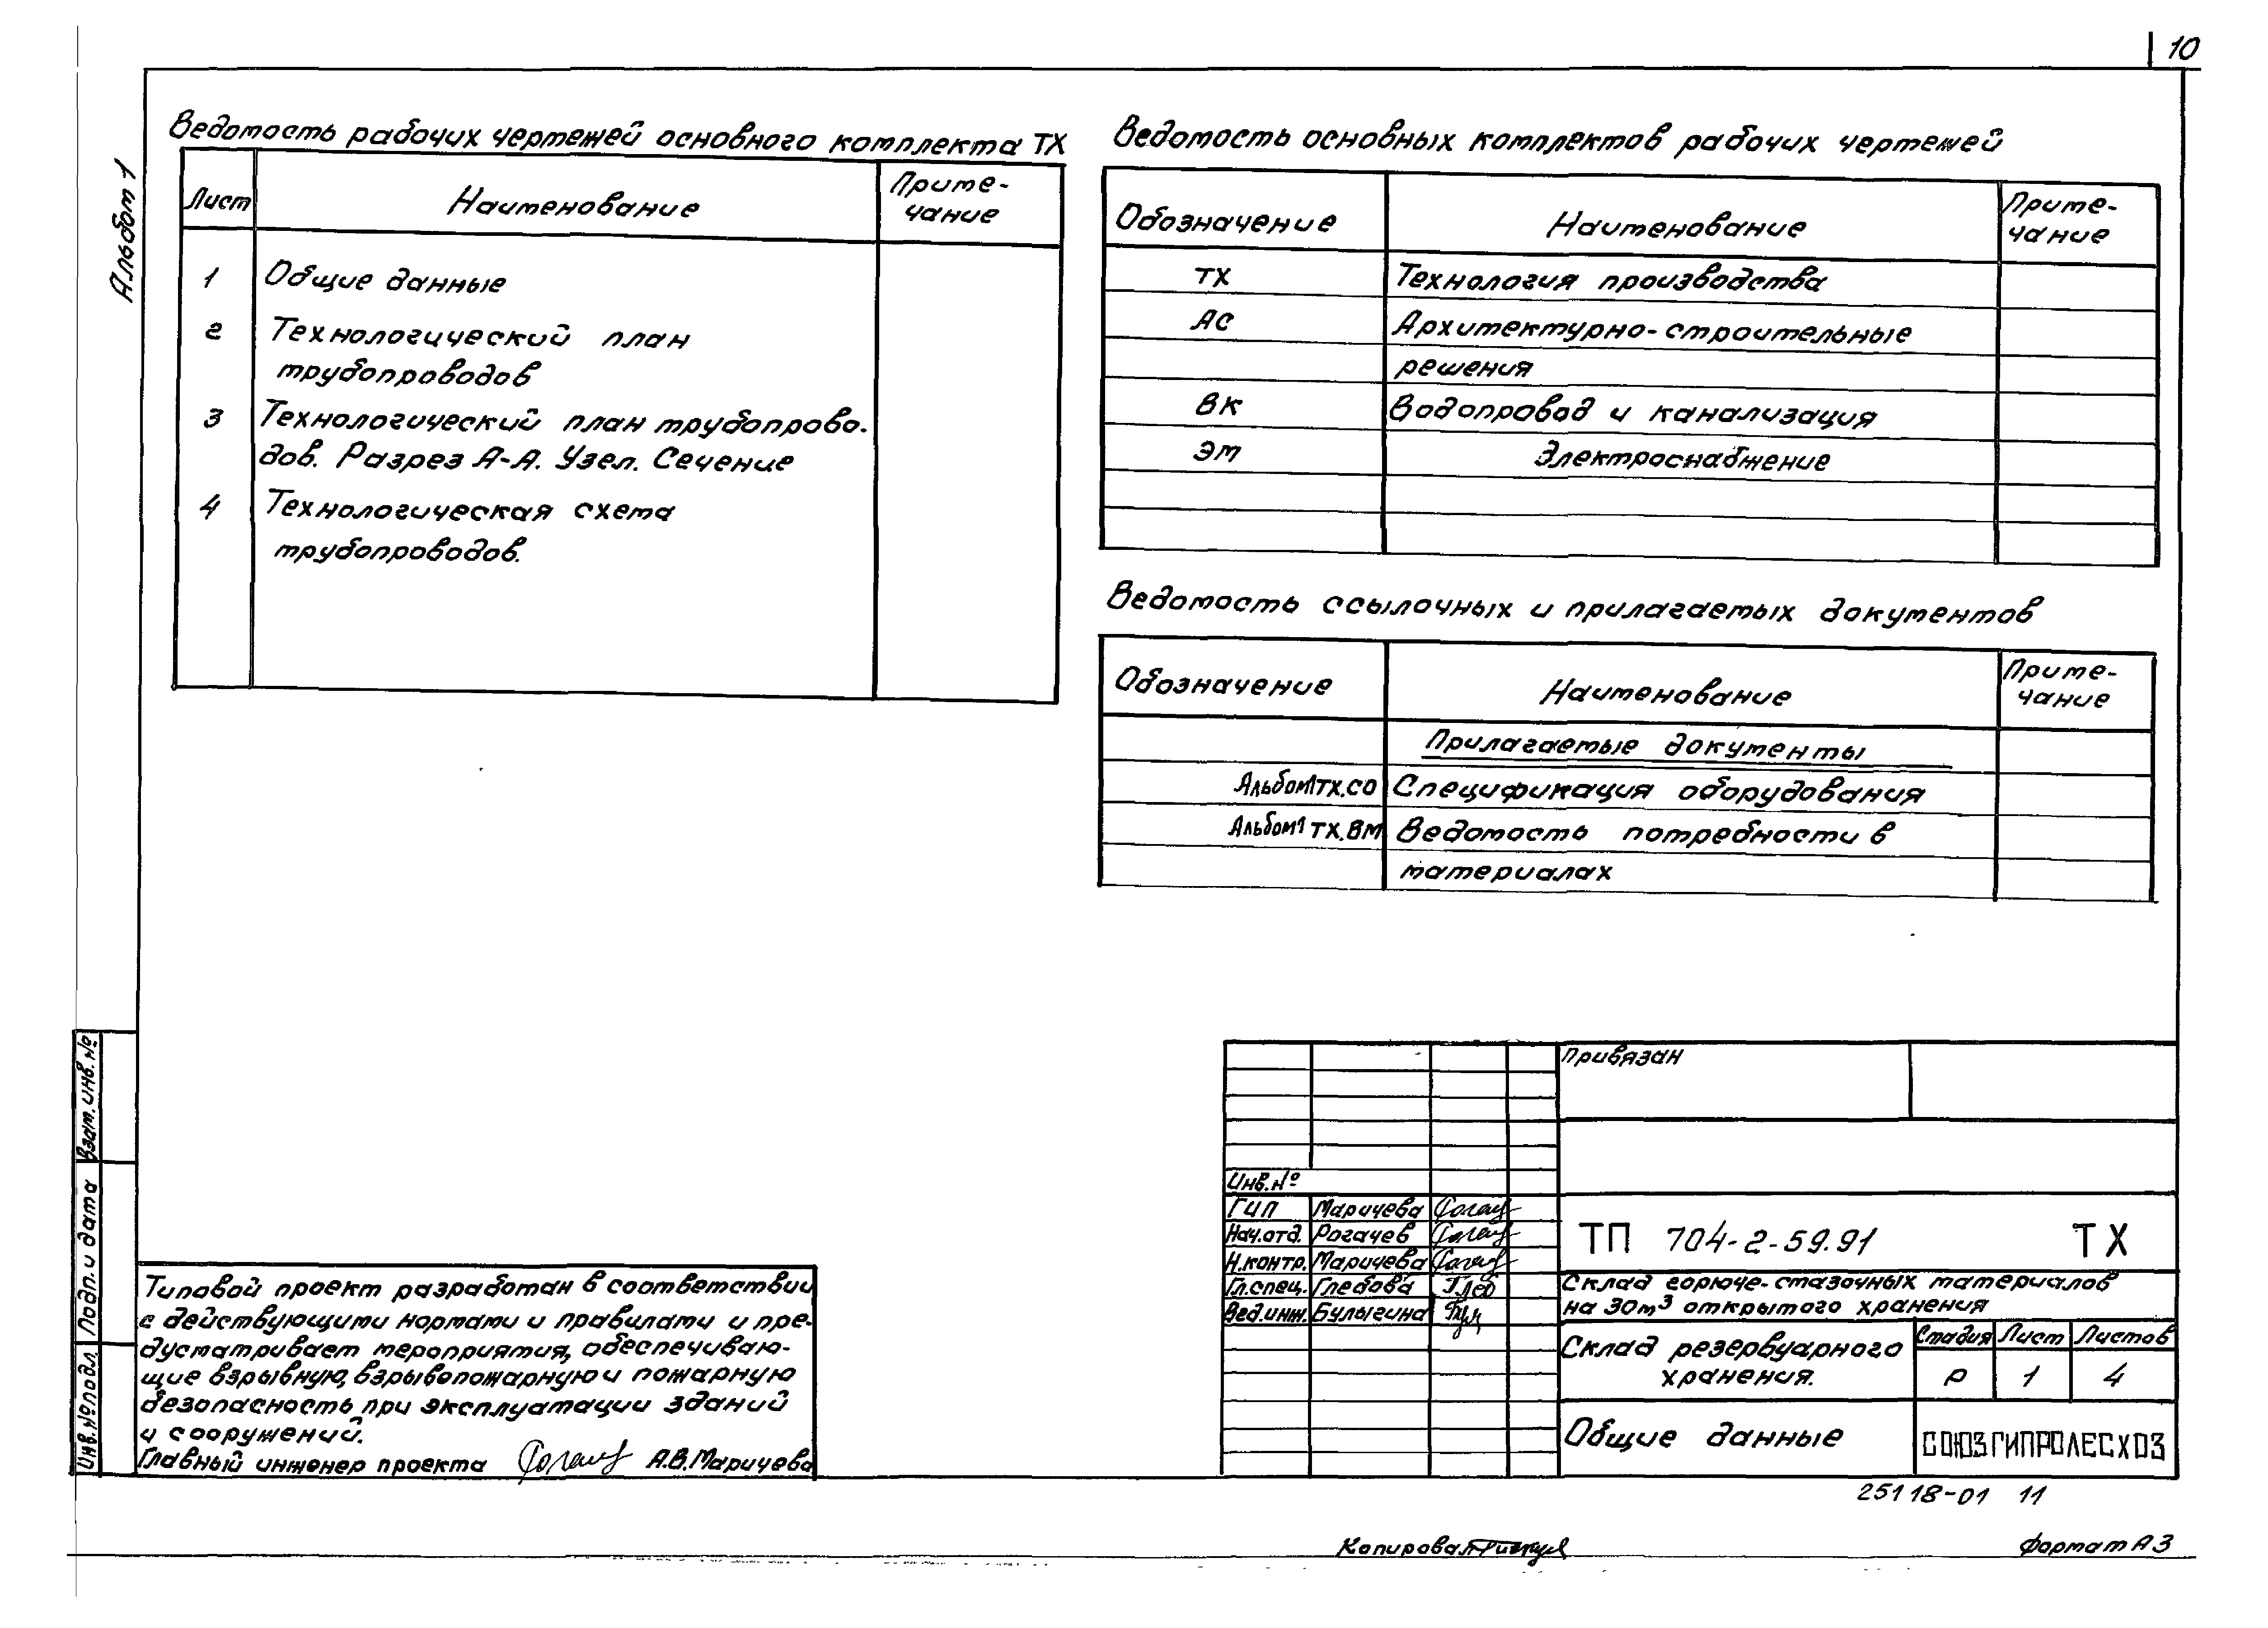 10
Альбом 1
Ведомость рабочих чертежей основного комплекта ТХ
Лист Наименование Приме-
чание
1 Общие данные
2 Технологический план
трубопроводов
3 Технологический план трубопрово-
дов. Разрез А-А. Узел. Сечение
4 Технологическая схема
трубопроводов.
Ведомость основных комплектов рабочих чертежей
Обозначение Наименование Приме-
чание
ТХ Технология производства
АС Архитектурно-строительные
решения
ВК Водопровод и канализация
ЭМ Электроснабжение
Ведомость ссылочных и прилагаемых документов
Обозначение Наименование Приме-
чание
Прилагаемые документы
Альбом1 ТХ.СО Спецификация оборудования
Альбом1 ТХ.ВМ Ведомость потребности в
материалах
Взам.инв.№
Подп. и дата
Инв.№подл.
Типовой проект разработан в соответствии
с действующими нормами и правилами и пре-
дусматривает мероприятия, обеспечиваю-
щие взрывную, взрывопожарную и пожарную
безопасность при эксплуатации зданий
и сооружений.
Главный инженер проекта А.В.Маричева
Привязан
Инв.№
ГИП Маричева
Нач.отд. Рогачев
Н.контр. Маричева
Гл.спец. Глебова
Вед.инж. Булыгина
ТП 704-2-59.91 ТХ
Склад горюче-смазочных материалов
на 30м³ открытого хранения
Склад резервуарного
хранения.
Стадия Лист Листов
Р 1 4
Общие данные
СОЮЗГИПРОЛЕСХОЗ
25118-01 11
Копировал
Формат А3